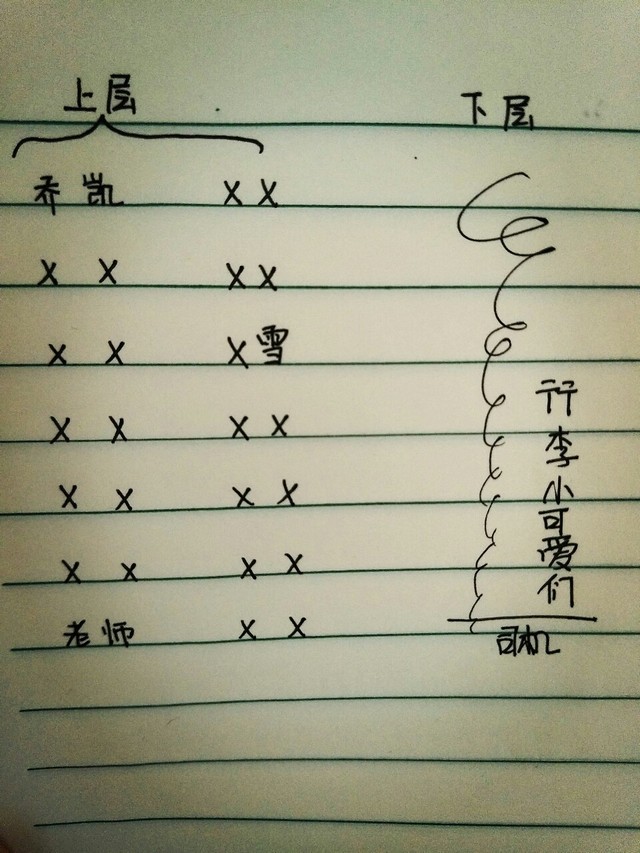 上层
下层
乔凯 X X
X X X X
X X X 雪
X X X X
X X X X
X X X X
老师 X X
行李小可爱们
司机